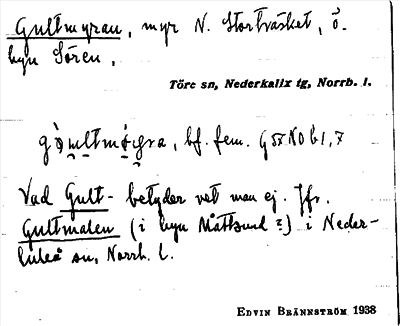 Gultmyran, myr N. Storträsket, ö.
byn Sören,
Töre sn, Nederkalix tg, Norrb. l.
bf. fem.
Vad Gult- betyder vet man ej. Jfr.
Gultmalen (i byn Måttsund?) i Neder-
luleå sn, Norrb. l.
EDVIN BRÄNNSTRÖM 1938